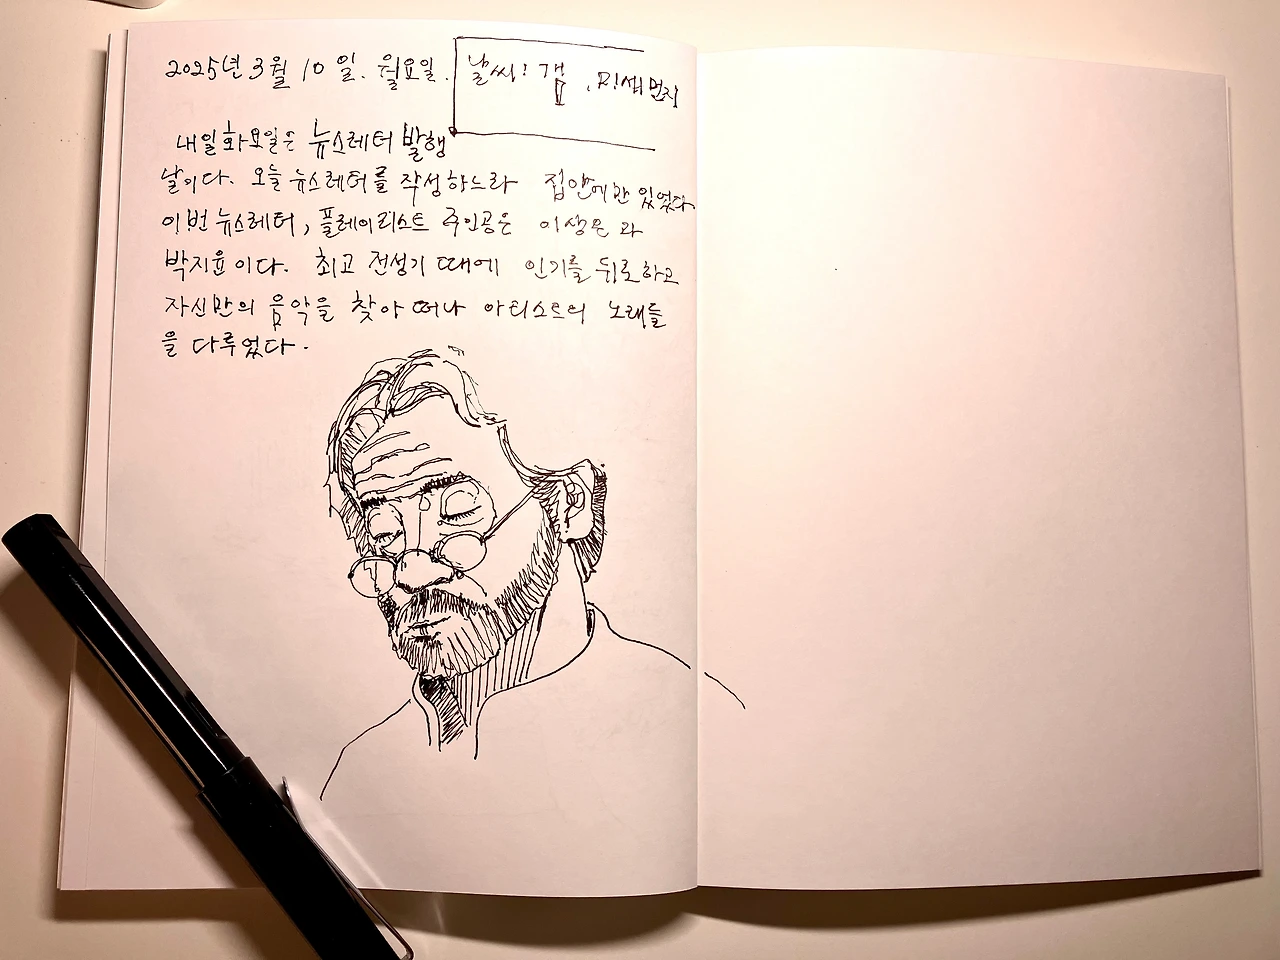 2025년 3월 10일. 월요일. 날씨: 갬, 미세먼지
내일 화요일은 뉴스레터 발행
날이다. 오늘 뉴스레터를 작성하느라 집안에만 있었다
이번 뉴스레터, 플레이리스트 주인공은 이상은과
박지윤이다. 최고 전성기 때에 인기를 뒤로하고
자신만의 음악을 찾아 떠나 아티스트의 노래들
을 다루었다.